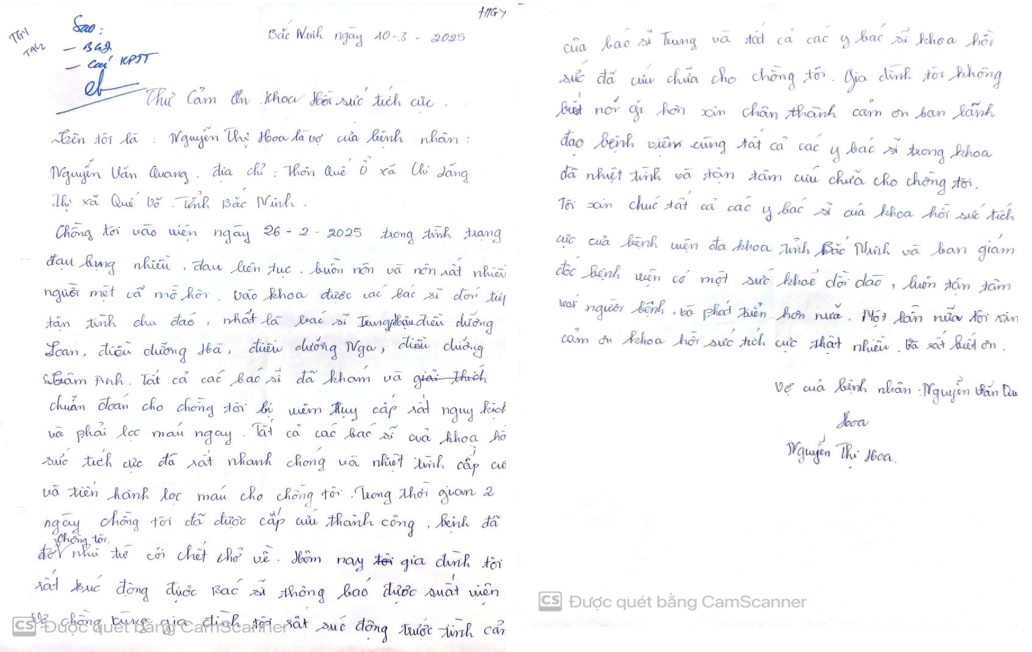 Sao:
- BGĐ
HGY
Bắc Ninh ngày 10-3-2025
Thư Cảm Ơn Khoa Hồi sức tích cực.
Tên tôi là: Nguyễn Thị Hoa là vợ của bệnh nhân:
Nguyễn Văn Quang. địa chỉ: Thôn Quế Ổ xã Chi Lăng
Thị xã Quế Võ. Tỉnh Bắc Ninh.
Chồng tôi vào viện ngày 26-2-2025 trong tình trạng
đau bụng nhiều, đau liên tục, buồn nôn và nôn rất nhiều
người mệt cả mồ hôi. vào khoa được các bác sĩ đón tiếp
tận tình chu đáo, nhất là bác sĩ Trung điều dưỡng
Loan, điều dưỡng Hà, điều dưỡng Nga, điều dưỡng
Trâm Anh. Tất cả các bác sĩ đã khám và giải thích
chuẩn đoán cho chồng tôi bị viêm tụy cấp rất nguy kịch
và phải lọc máu ngay. Tất cả các bác sĩ của khoa hồ
sức tích cực đã rất nhanh chóng và nhiệt tình cấp cứ
và tiến hành lọc máu cho chồng tôi. Trong thời gian 2
ngày chồng tôi đã được cấp cứu thành công, bệnh đã
đỡ chồng tôi như từ cõi chết chở về. Hôm nay tôi gia đình tôi
rất xúc động được Bác sĩ thông báo được xuất viện
chồng cùng gia đình tôi rất xúc động trước tình cảm
CS Được quét bằng CamScanner
của bác sĩ Trung và tất cả các y bác sĩ khoa hồi
sức đã cứu chữa cho chồng tôi. Gia đình tôi không
biết nói gì hơn xin chân thành cảm ơn ban lãnh
đạo bệnh viện cùng tất cả các y bác sĩ trong khoa
đã nhiệt tình và tận tâm cứu chữa cho chồng tôi.
Tôi xin chúc tất cả các y bác sĩ của khoa hồi sức tích
cực của bệnh viện đa khoa tỉnh Bắc Ninh và ban giám
đốc bệnh viện có một sức khoẻ dồi dào, luôn tận tâm
với người bệnh, và phát triển hơn nữa. Một lần nữa tôi xin
cảm ơn khoa hồi sức tích cực thật nhiều. Và rất biết ơn.
Vợ của bệnh nhân: Nguyễn Văn
Hoa
Nguyễn Thị Hoa.
CS Được quét bằng CamScanner